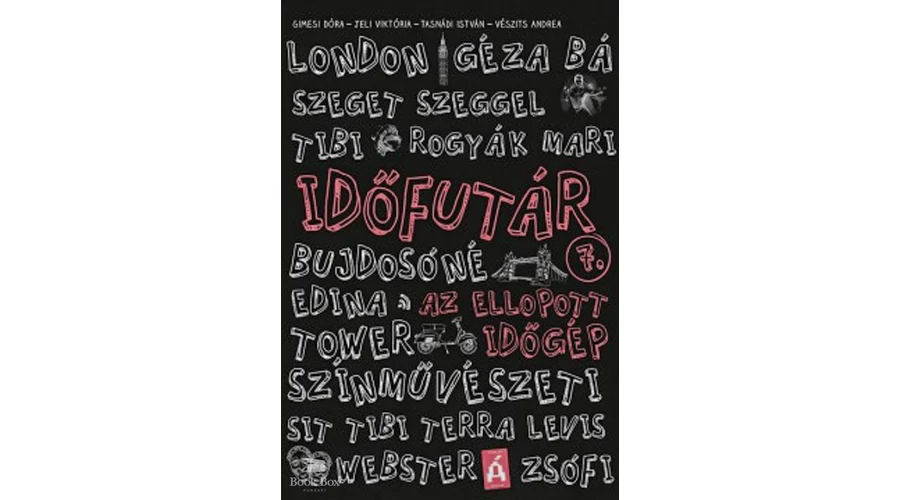 GIMESI DÓRA – JELI VIKTÓRIA – TASNÁDI ISTVÁN – VÉSZITS ANDREA
LONDON GÉZA BÁ
SZEGET SZEGGEL
TIBI ROGYÁK MARI
IDŐFUTÁR
7.
BUJDOSÓNÉ
EDINA AZ ELLOPOTT
TOWER IDŐGÉP
SZÍNMŰVÉSZETI
SIT TIBI TERRA LEVIS
WEBSTER Á ZSÓFI
Book Box